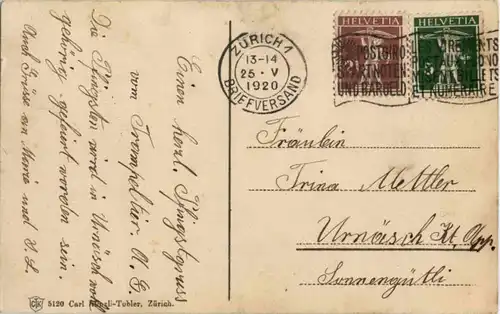 HELVETIA
HELVETIA
ZÜRICH 1
13-14
25·V
1920
BRIEFVERSAND
POSTGIRO
SPART NOTEN
UND BARGELD
ET NUMERAIRE
Einen herzl. Pfingstgruss
vom Trompetier. A. E.
Die Pfingsten wird in Urnäsch wohl
gehörig gefeiert worden sein.
Auch Grüsse an Marie und
Fräulein
Trina Mettler
Urnäsch Kt. App.
Sonnengütli
5120 Carl Künzli-Tobler, Zürich.